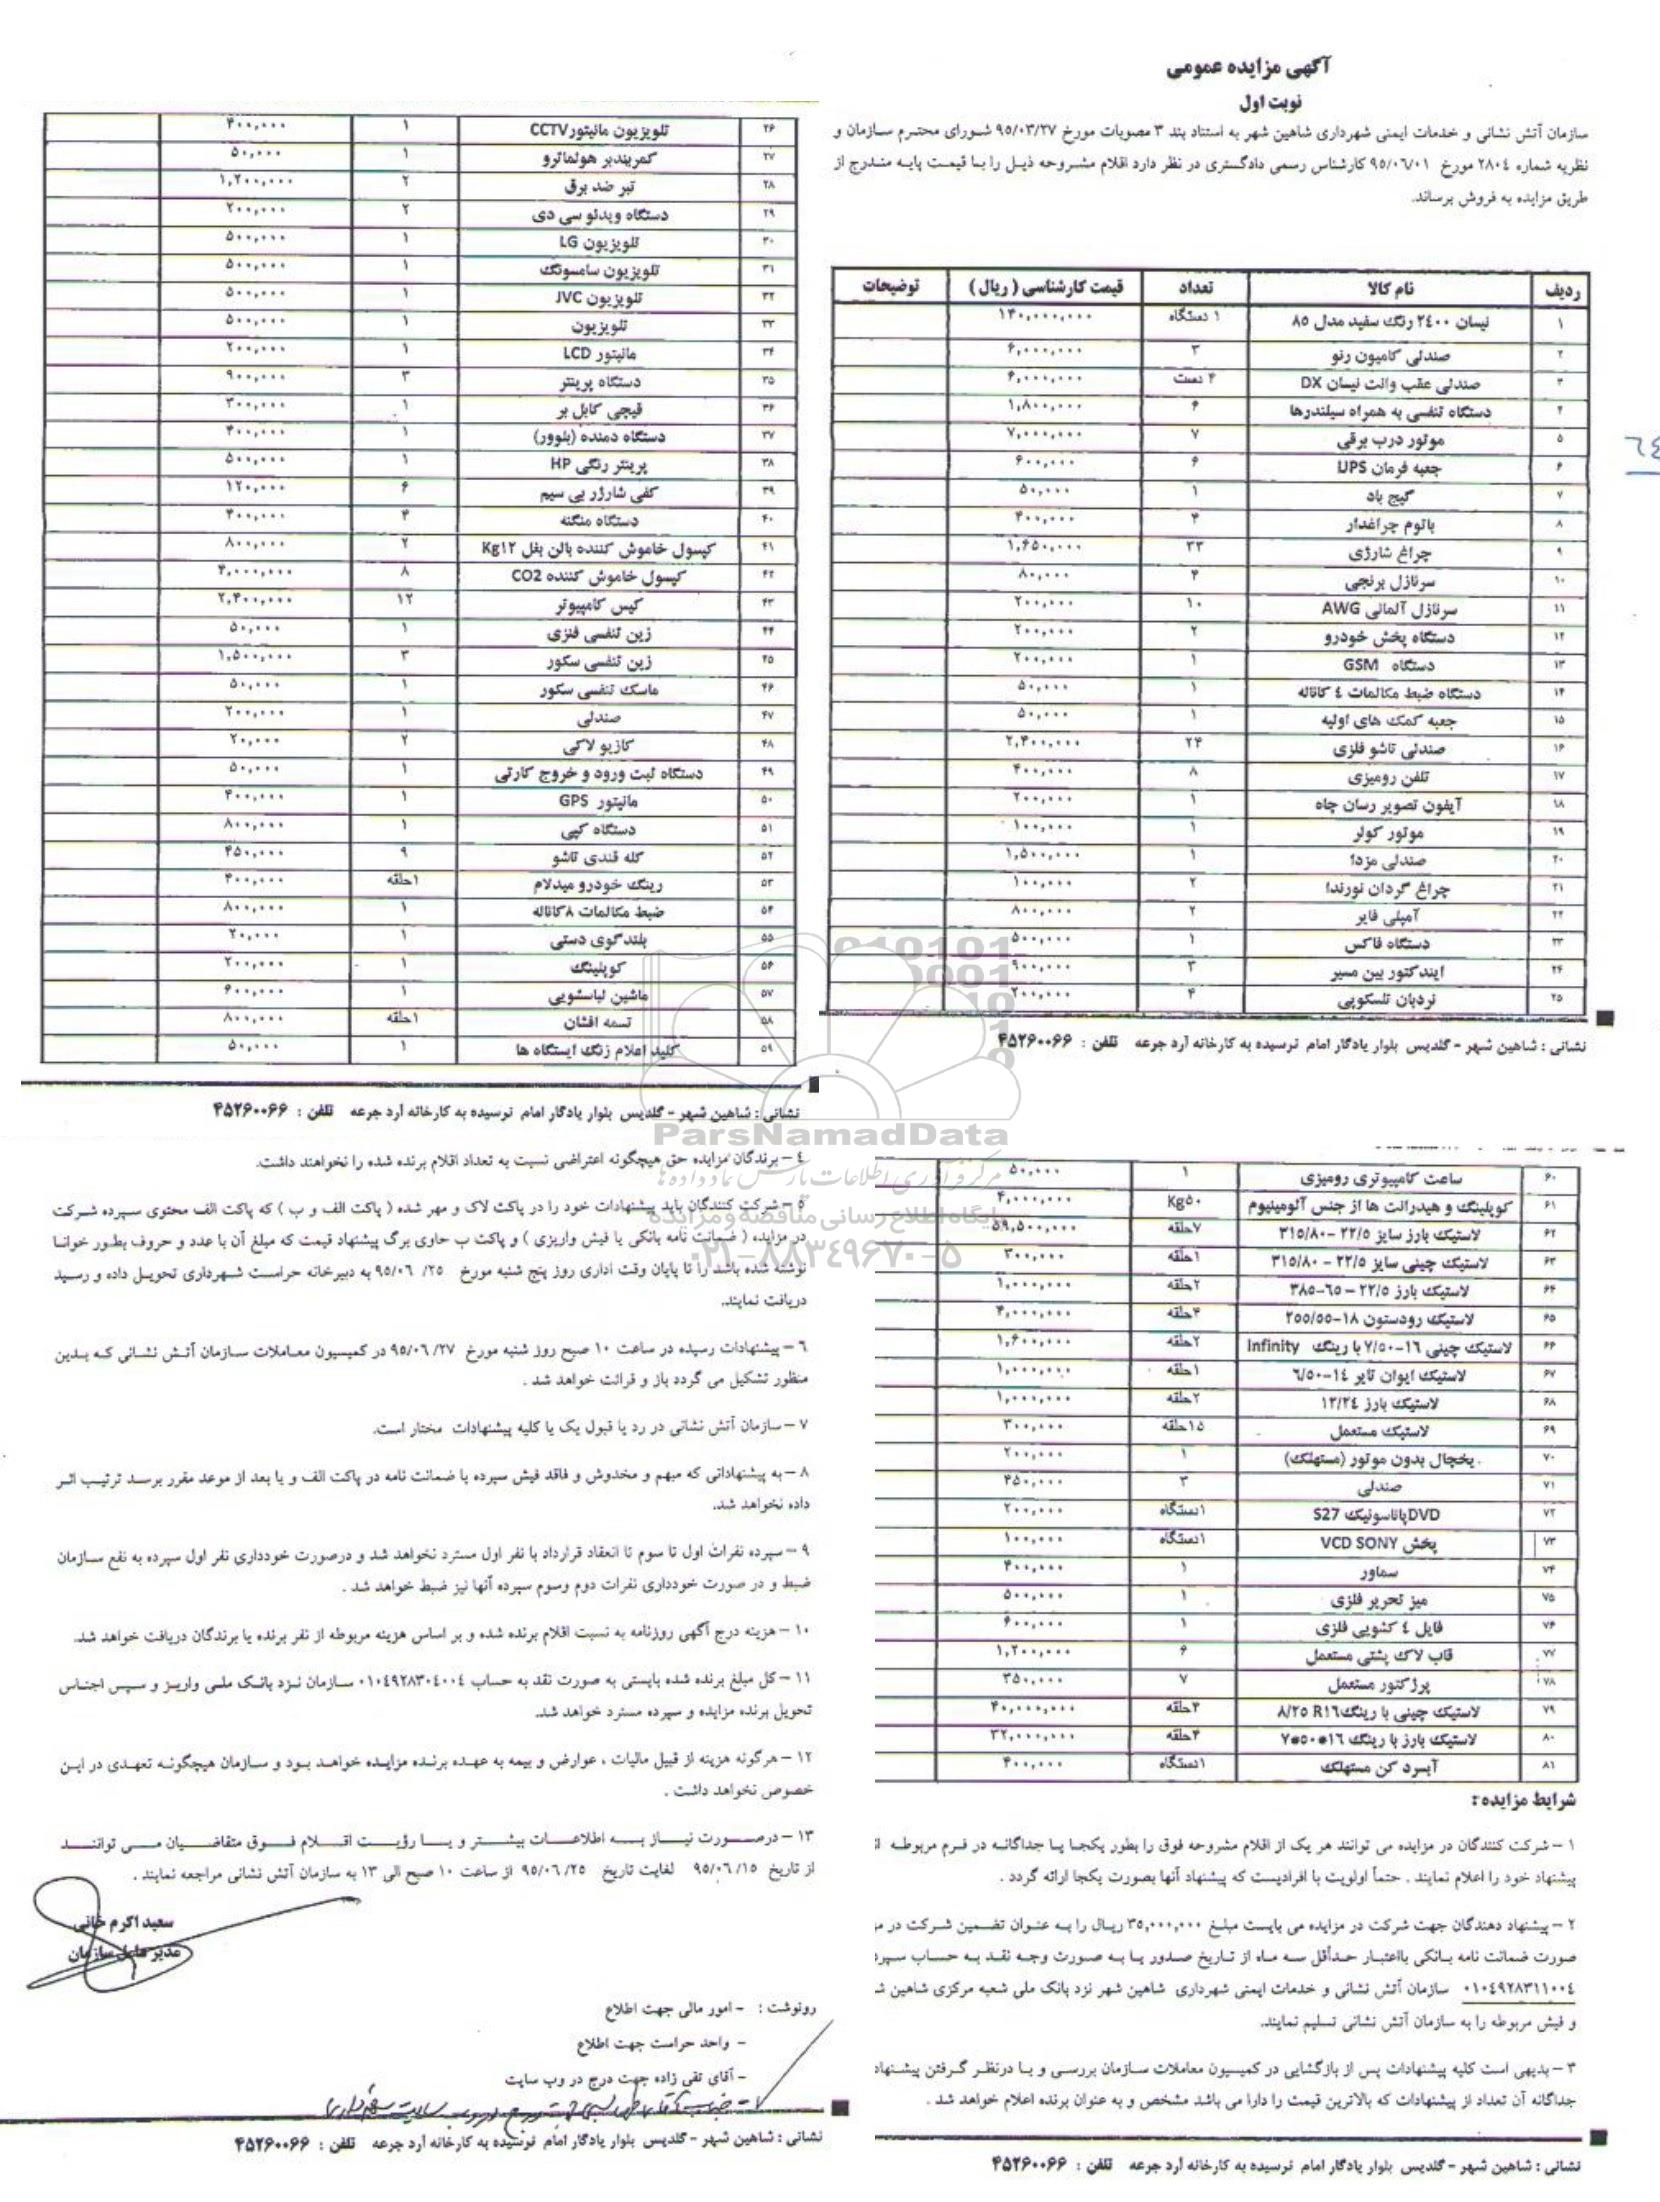 آگهی مزایده عمومی
نوبت اول
سازمان آتش نشانی و خدمات ایمنی شهرداری شاهین شهر به استناد بند ۳ مصوبات مورخ ۹۵/۰۳/۲۷ شورای محترم سازمان و
نظریه شماره ۲۸۰٤ مورخ ۹۵/۰٦/۰۱ کارشناس رسمی دادگستری در نظر دارد اقلام مشروحه ذیل را با قیمت پایه مندرج از
طریق مزایده به فروش برساند.
ردیف نام کالا تعداد قیمت کارشناسی ( ریال ) توضیحات
۱ نیسان ۲٤۰۰ رنگ سفید مدل ۸۵ ۱ دستگاه ۱۴۰,۰۰۰,۰۰۰
۲ صندلی کامیون رنو ۳ ۶,۰۰۰,۰۰۰
۳ صندلی عقب وانت نیسان DX ۴ دست ۶,۰۰۰,۰۰۰
۴ دستگاه تنفسی به همراه سیلندرها ۶ ۱,۸۰۰,۰۰۰
۵ موتور درب برقی ۷ ۷,۰۰۰,۰۰۰
۶ جعبه فرمان UPS ۶ ۶۰۰,۰۰۰
۷ گیج باد ۱ ۵۰,۰۰۰
۸ باتوم چراغدار ۴ ۴۰۰,۰۰۰
۹ چراغ شارژی ۳۳ ۱,۶۵۰,۰۰۰
۱۰ سرنازل برنجی ۴ ۸۰,۰۰۰
۱۱ سرنازل آلمانی AWG ۱۰ ۲۰۰,۰۰۰
۱۲ دستگاه پخش خودرو ۲ ۲۰۰,۰۰۰
۱۳ دستگاه GSM ۱ ۲۰۰,۰۰۰
۱۴ دستگاه ضبط مکالمات ٤ کاناله ۱ ۵۰,۰۰۰
۱۵ جعبه کمک های اولیه ۱ ۵۰,۰۰۰
۱۶ صندلی تاشو فلزی ۲۴ ۲,۴۰۰,۰۰۰
۱۷ تلفن رومیزی ۸ ۴۰۰,۰۰۰
۱۸ آیفون تصویر رسان چاه ۱ ۲۰۰,۰۰۰
۱۹ موتور کولر ۱ ۱۰۰,۰۰۰
۲۰ صندلی مزدا ۱ ۱,۵۰۰,۰۰۰
۲۱ چراغ گردان نورندا ۲ ۱۰۰,۰۰۰
۲۲ آمپلی فایر ۲ ۸۰۰,۰۰۰
۲۳ دستگاه فاکس ۱ ۵۰۰,۰۰۰
۲۴ ایندکتور بین مسیر ۳ ۹۰۰,۰۰۰
۲۵ نردبان تلسکوپی ۴ ۲۰۰,۰۰۰
نشانی : شاهین شهر - گلدیس بلوار یادگار امام نرسیده به کارخانه آرد جرعه تلفن : ۴۵۲۶۰۰۶۶
۲۶ تلویزیون مانیتور CCTV ۱ ۴۰۰,۰۰۰
۲۷ کمربندبر هولماترو ۱ ۵۰,۰۰۰
۲۸ تبر ضد برق ۲ ۱,۲۰۰,۰۰۰
۲۹ دستگاه ویدئو سی دی ۲ ۲۰۰,۰۰۰
۳۰ تلویزیون LG ۱ ۵۰۰,۰۰۰
۳۱ تلویزیون سامسونگ ۱ ۵۰۰,۰۰۰
۳۲ تلویزیون JVC ۱ ۵۰۰,۰۰۰
۳۳ تلویزیون ۱ ۵۰۰,۰۰۰
۳۴ مانیتور LCD ۱ ۲۰۰,۰۰۰
۳۵ دستگاه پرینتر ۳ ۹۰۰,۰۰۰
۳۶ قیچی کابل بر ۱ ۳۰۰,۰۰۰
۳۷ دستگاه دمنده (بلوور) ۱ ۴۰۰,۰۰۰
۳۸ پرینتر رنگی HP ۱ ۵۰۰,۰۰۰
۳۹ کفی شارژر بی سیم ۶ ۱۲۰,۰۰۰
۴۰ دستگاه منگنه ۴ ۴۰۰,۰۰۰
۴۱ کپسول خاموش کننده بالن بغل Kg۱۲ ۲ ۸۰۰,۰۰۰
۴۲ کپسول خاموش کننده CO2 ۸ ۴,۰۰۰,۰۰۰
۴۳ کیس کامپیوتر ۱۲ ۲,۴۰۰,۰۰۰
۴۴ زین تنفسی فنزی ۱ ۵۰,۰۰۰
۴۵ زین تنفسی سکور ۳ ۱,۵۰۰,۰۰۰
۴۶ ماسک تنفسی سکور ۱ ۵۰,۰۰۰
۴۷ صندلی ۱ ۲۰۰,۰۰۰
۴۸ کازیو لاکی ۲ ۲۰,۰۰۰
۴۹ دستگاه ثبت ورود و خروج کارتی ۱ ۵۰,۰۰۰
۵۰ مانیتور GPS ۱ ۴۰۰,۰۰۰
۵۱ دستگاه کپی ۱ ۸۰۰,۰۰۰
۵۲ کله قندی تاشو ۹ ۴۵۰,۰۰۰
۵۳ رینگ خودرو میدلام ۱حلقه ۴۰۰,۰۰۰
۵۴ ضبط مکالمات ۸کاناله ۱ ۸۰۰,۰۰۰
۵۵ بلندگوی دستی ۱ ۲۰,۰۰۰
۵۶ کوپلینگ ۱ ۲۰۰,۰۰۰
۵۷ ماشین لباسشویی ۱ ۶۰۰,۰۰۰
۵۸ تسمه افشان ۱حلقه ۸۰۰,۰۰۰
۵۹ کلید اعلام زنگ ایستگاه ها ۱ ۵۰,۰۰۰
نشانی : شاهین شهر - گلدیس بلوار یادگار امام نرسیده به کارخانه آرد جرعه تلفن : ۴۵۲۶۰۰۶۶
ParsNamadData
مرکز فرآوری اطلاعات پارس نماد داده ها
پایگاه اطلاع رسانی مناقصه و مزایده
۰۲۱-۸۸۳۴۹۶۷۰-۵
۶۰ ساعت کامپیوتری رومیزی ۱ ۵۰,۰۰۰
۶۱ کوپلینگ و هیدرانت ها از جنس آلومینیوم Kg۵۰ ۴,۰۰۰,۰۰۰
۶۲ لاستیک بارز سایز ۲۲/۵ -۳۱۵/۸۰ ۷حلقه ۵۹,۵۰۰,۰۰۰
۶۳ لاستیک چینی سایز ۲۲/۵ - ۳۱۵/۸۰ ۱حلقه ۳۰۰,۰۰۰
۶۴ لاستیک بارز ۲۲/۵ - ٦۵-۳۸۵ ۲حلقه ۱,۰۰۰,۰۰۰
۶۵ لاستیک رودستون ۱۸-۲۵۵/۵۵ ۴حلقه ۴,۰۰۰,۰۰۰
۶۶ لاستیک چینی ۱٦-۷/۵۰ با رینگ Infinity ۲حلقه ۱,۶۰۰,۰۰۰
۶۷ لاستیک ایوان تایر ۱٤-٦/۵۰ ۱حلقه ۱,۰۰۰,۰۰۰
۶۸ لاستیک بارز ۱۲/۲٤ ۲حلقه ۱,۰۰۰,۰۰۰
۶۹ لاستیک مستعمل ۱۵حلقه ۳۰۰,۰۰۰
۷۰ یخچال بدون موتور (مستهلک) ۱ ۲۰۰,۰۰۰
۷۱ صندلی ۳ ۴۵۰,۰۰۰
۷۲ DVDپاناسونیک S27 ۱دستگاه ۲۰۰,۰۰۰
۷۳ پخش VCD SONY ۱دستگاه ۱۰۰,۰۰۰
۷۴ سماور ۱ ۴۰۰,۰۰۰
۷۵ میز تحریر فلزی ۱ ۵۰۰,۰۰۰
۷۶ فایل ٤ کشویی فلزی ۱ ۶۰۰,۰۰۰
۷۷ قاب لاک پشتی مستعمل ۶ ۱,۲۰۰,۰۰۰
۷۸ پرژکتور مستعمل ۷ ۳۵۰,۰۰۰
۷۹ لاستیک چینی با رینگ ۸/۲۵ R۱٦ ۴حلقه ۴۰,۰۰۰,۰۰۰
۸۰ لاستیک بارز با رینگ ۱٦*۵۰*۷ ۴حلقه ۳۲,۰۰۰,۰۰۰
۸۱ آبسرد کن مستهلک ۱دستگاه ۴۰۰,۰۰۰
شرایط مزایده :
۱ – شرکت کنندگان در مزایده می توانند هر یک از اقلام مشروحه فوق را بطور یکجا یا جداگانه در فرم مربوطه
پیشنهاد خود را اعلام نمایند . حتماً اولویت با افرادیست که پیشنهاد آنها بصورت یکجا ارائه گردد .
۲ – پیشنهاد دهندگان جهت شرکت در مزایده می بایست مبلغ ۳۵,۰۰۰,۰۰۰ ریال را به عنوان تضمین شرکت در
صورت ضمانت نامه بانکی بااعتبار حداقل سه ماه از تاریخ صدور یا به صورت وجه نقد به حساب
۰۱۰٤۹۲۸۳۱۱۰۰٤ سازمان آتش نشانی و خدمات ایمنی شهرداری شاهین شهر نزد بانک ملی شعبه مرکزی شاهین
و فیش مربوطه را به سازمان آتش نشانی تسلیم نمایند.
۳ – بدیهی است کلیه پیشنهادات پس از بازگشایی در کمیسیون معاملات سازمان بررسی و با درنظر گرفتن پیشنهاد
جداگانه آن تعداد از پیشنهادات که بالاترین قیمت را دارا می باشد مشخص و به عنوان برنده اعلام خواهد شد .
نشانی : شاهین شهر - گلدیس بلوار یادگار امام نرسیده به کارخانه آرد جرعه تلفن : ۴۵۲۶۰۰۶۶
٤ – برندگان مزایده حق هیچگونه اعتراضی نسبت به تعداد اقلام برنده شده را نخواهند داشت.
۵ – شرکت کنندگان باید پیشنهادات خود را در پاکت لاک و مهر شده ( پاکت الف و ب ) که پاکت الف محتوی سپرده شرکت
در مزایده ( ضمانت نامه بانکی یا فیش واریزی ) و پاکت ب حاوی برگ پیشنهاد قیمت که مبلغ آن با عدد و حروف بطور خوانا
نوشته شده باشد را تا پایان وقت اداری روز پنج شنبه مورخ ۹۵/۰٦/۲۵ به دبیرخانه حراست شهرداری تحویل داده و رسید
دریافت نمایند.
٦ – پیشنهادات رسیده در ساعت ۱۰ صبح روز شنبه مورخ ۹۵/۰٦/۲۷ در کمیسیون معاملات سازمان آتش نشانی که بدین
منظور تشکیل می گردد باز و قرائت خواهد شد .
۷ – سازمان آتش نشانی در رد یا قبول یک یا کلیه پیشنهادات مختار است.
۸ – به پیشنهاداتی که مبهم و مخدوش و فاقد فیش سپرده یا ضمانت نامه در پاکت الف و یا بعد از موعد مقرر برسد ترتیب اثر
داده نخواهد شد.
۹ – سپرده نفرات اول تا سوم تا انعقاد قرارداد با نفر اول مسترد نخواهد شد و درصورت خودداری نفر اول سپرده به نفع سازمان
ضبط و در صورت خودداری نفرات دوم وسوم سپرده آنها نیز ضبط خواهد شد .
۱۰ – هزینه درج آگهی روزنامه به نسبت اقلام برنده شده و بر اساس هزینه مربوطه از نفر برنده یا برندگان دریافت خواهد شد.
۱۱ – کل مبلغ برنده شده بایستی به صورت نقد به حساب ۰۱۰٤۹۲۸۳۰٤۰۰٤ سازمان نزد بانک ملی واریز و سپس اجناس
تحویل برنده مزایده و سپرده مسترد خواهد شد.
۱۲ – هرگونه هزینه از قبیل مالیات ، عوارض و بیمه به عهده برنده مزایده خواهد بود و سازمان هیچگونه تعهدی در این
خصوص نخواهد داشت .
۱۳ – درصورت نیاز به اطلاعات بیشتر و یا رؤیت اقلام فوق متقاضیان می توانند
از تاریخ ۹۵/۰٦/۱۵ لغایت تاریخ ۹۵/۰٦/۲۵ از ساعت ۱۰ صبح الی ۱۳ به سازمان آتش نشانی مراجعه نمایند .
سعید اکرم خانی
مدیر عامل سازمان
رونوشت : - امور مالی جهت اطلاع
- واحد حراست جهت اطلاع
- آقای تقی زاده جهت درج در وب سایت
نشانی : شاهین شهر - گلدیس بلوار یادگار امام نرسیده به کارخانه آرد جرعه تلفن : ۴۵۲۶۰۰۶۶